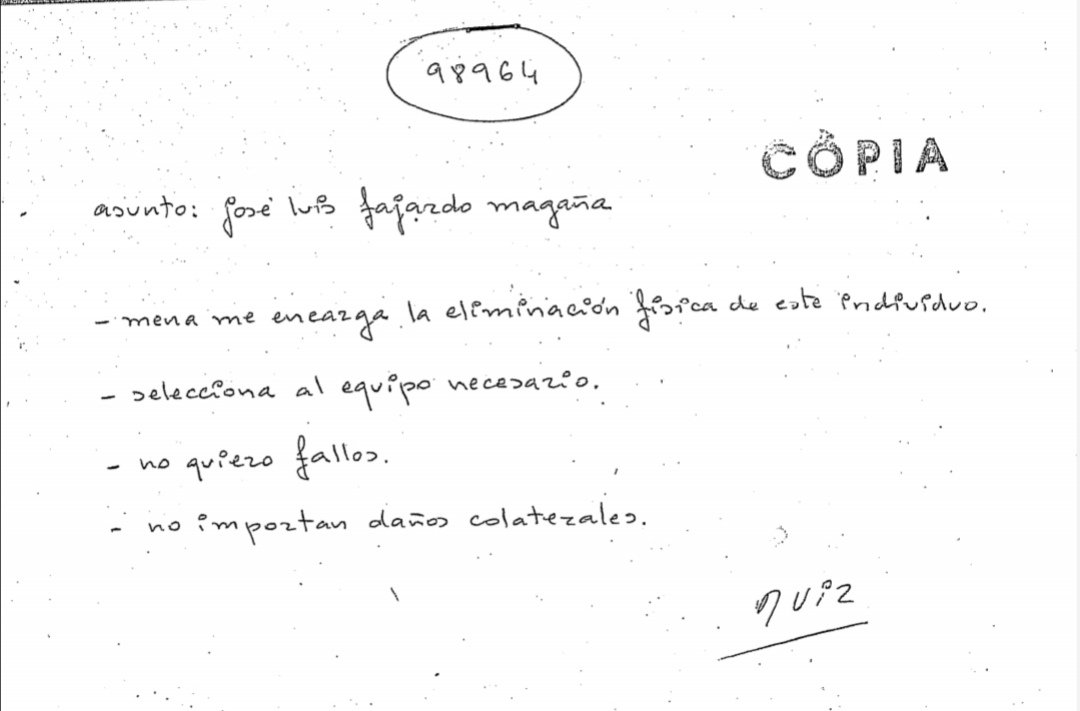 98964
CÓPIA
asunto: José Luis fajardo magaña
- mena me encarga la eliminación física de este individuo.
- selecciona al equipo necesario.
- no quiero fallos.
- no importan daños colaterales.